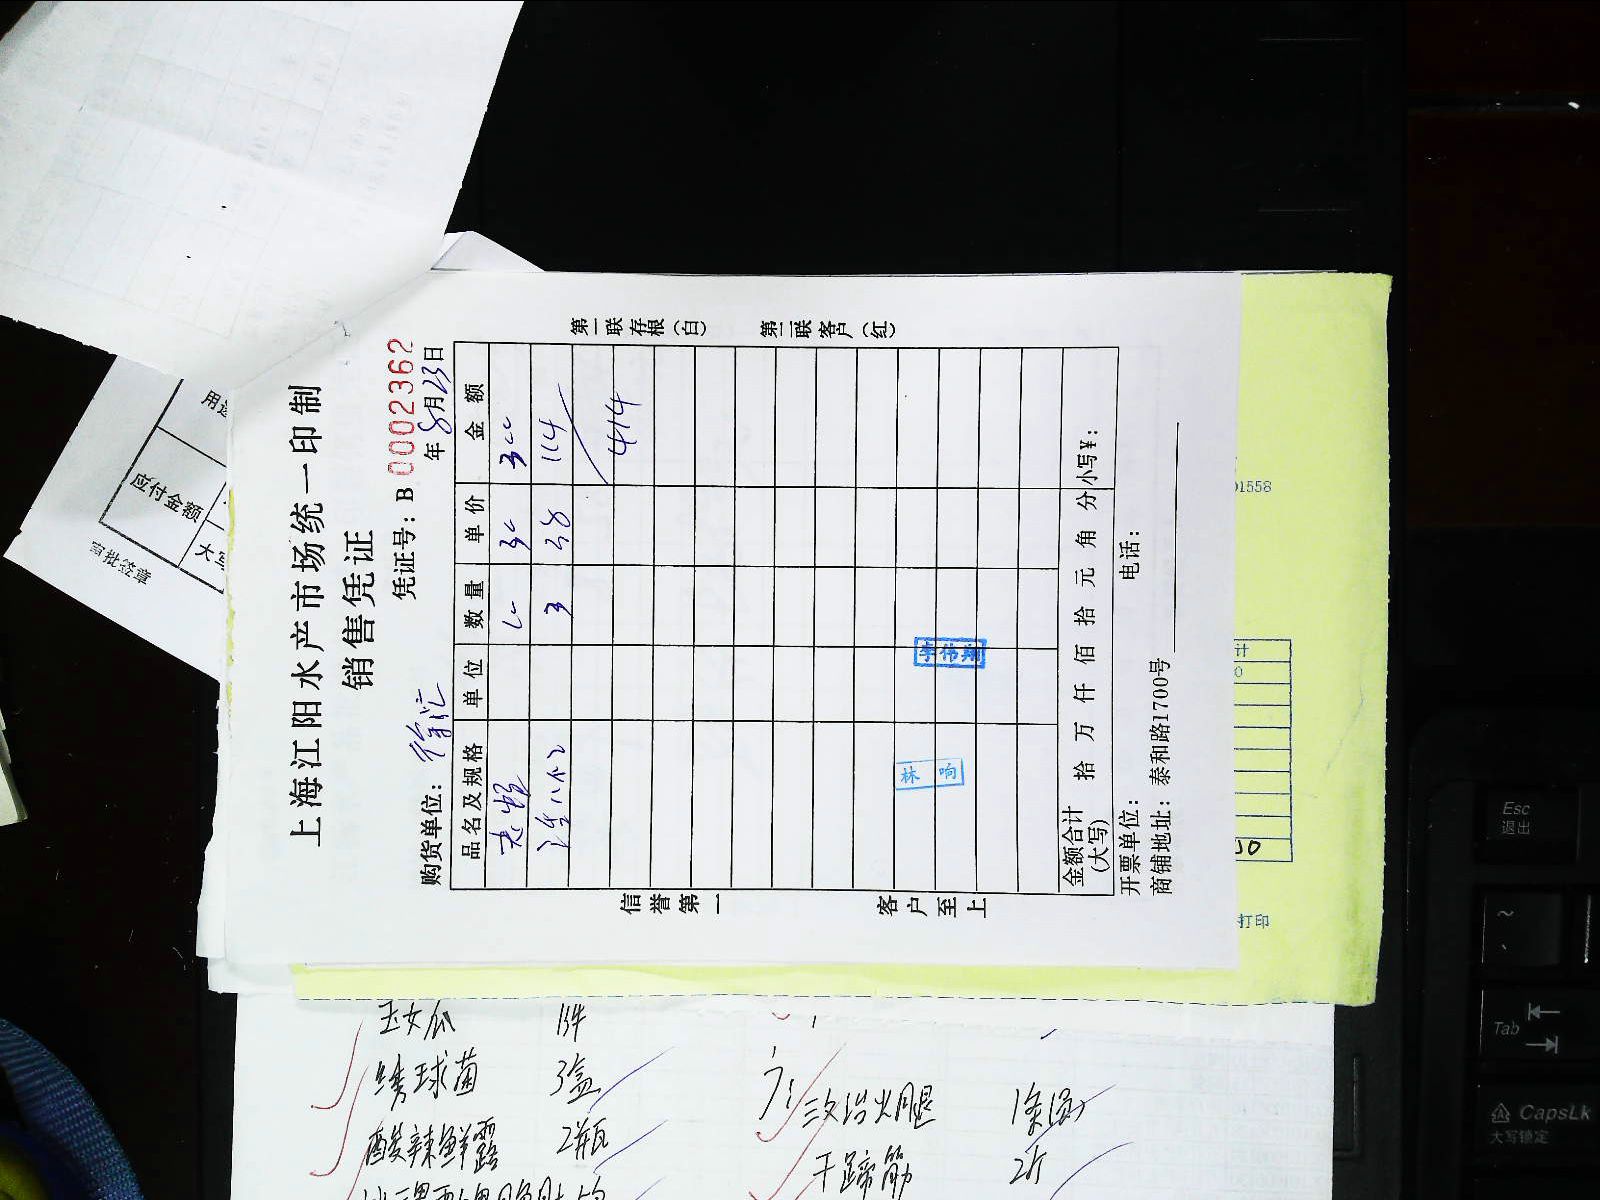 上海江阳水产市场统一印制
销售凭证
凭证号：B 0002362
购货单位：徐汇 年8月23日
品名及规格 单位 数量 单价 金额
300
3 38 114
414
金额合计(大写) 拾 万 仟 佰 拾 元 角 分 小写¥：
开票单位： 电话：
商铺地址：泰和路1700号
第一联存根（白）
第二联客户（红）
信誉第一
客户至上
李伟翔
林响
应付金额
大写
审批签章
01558
计
打印
玉女瓜 1件
绣球菌 3盒
酸辣鲜露 2瓶
三文治火腿
干蹄筋 2斤
Esc
退出
~
Tab
CapsLk
大写锁定